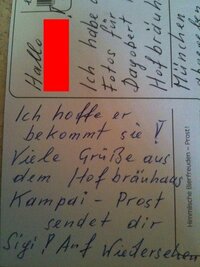 Hallo
Ich habe
Fotos für
Dagobert
Hofbräuh
München
Ich hoffe er
bekommt sie!
Viele Grüße aus
dem Hofbräuhaus
Kampai - Prost
sendet dir
Sigi! Auf Wiedersehen
Himmlische Bierfreuden – Prost!